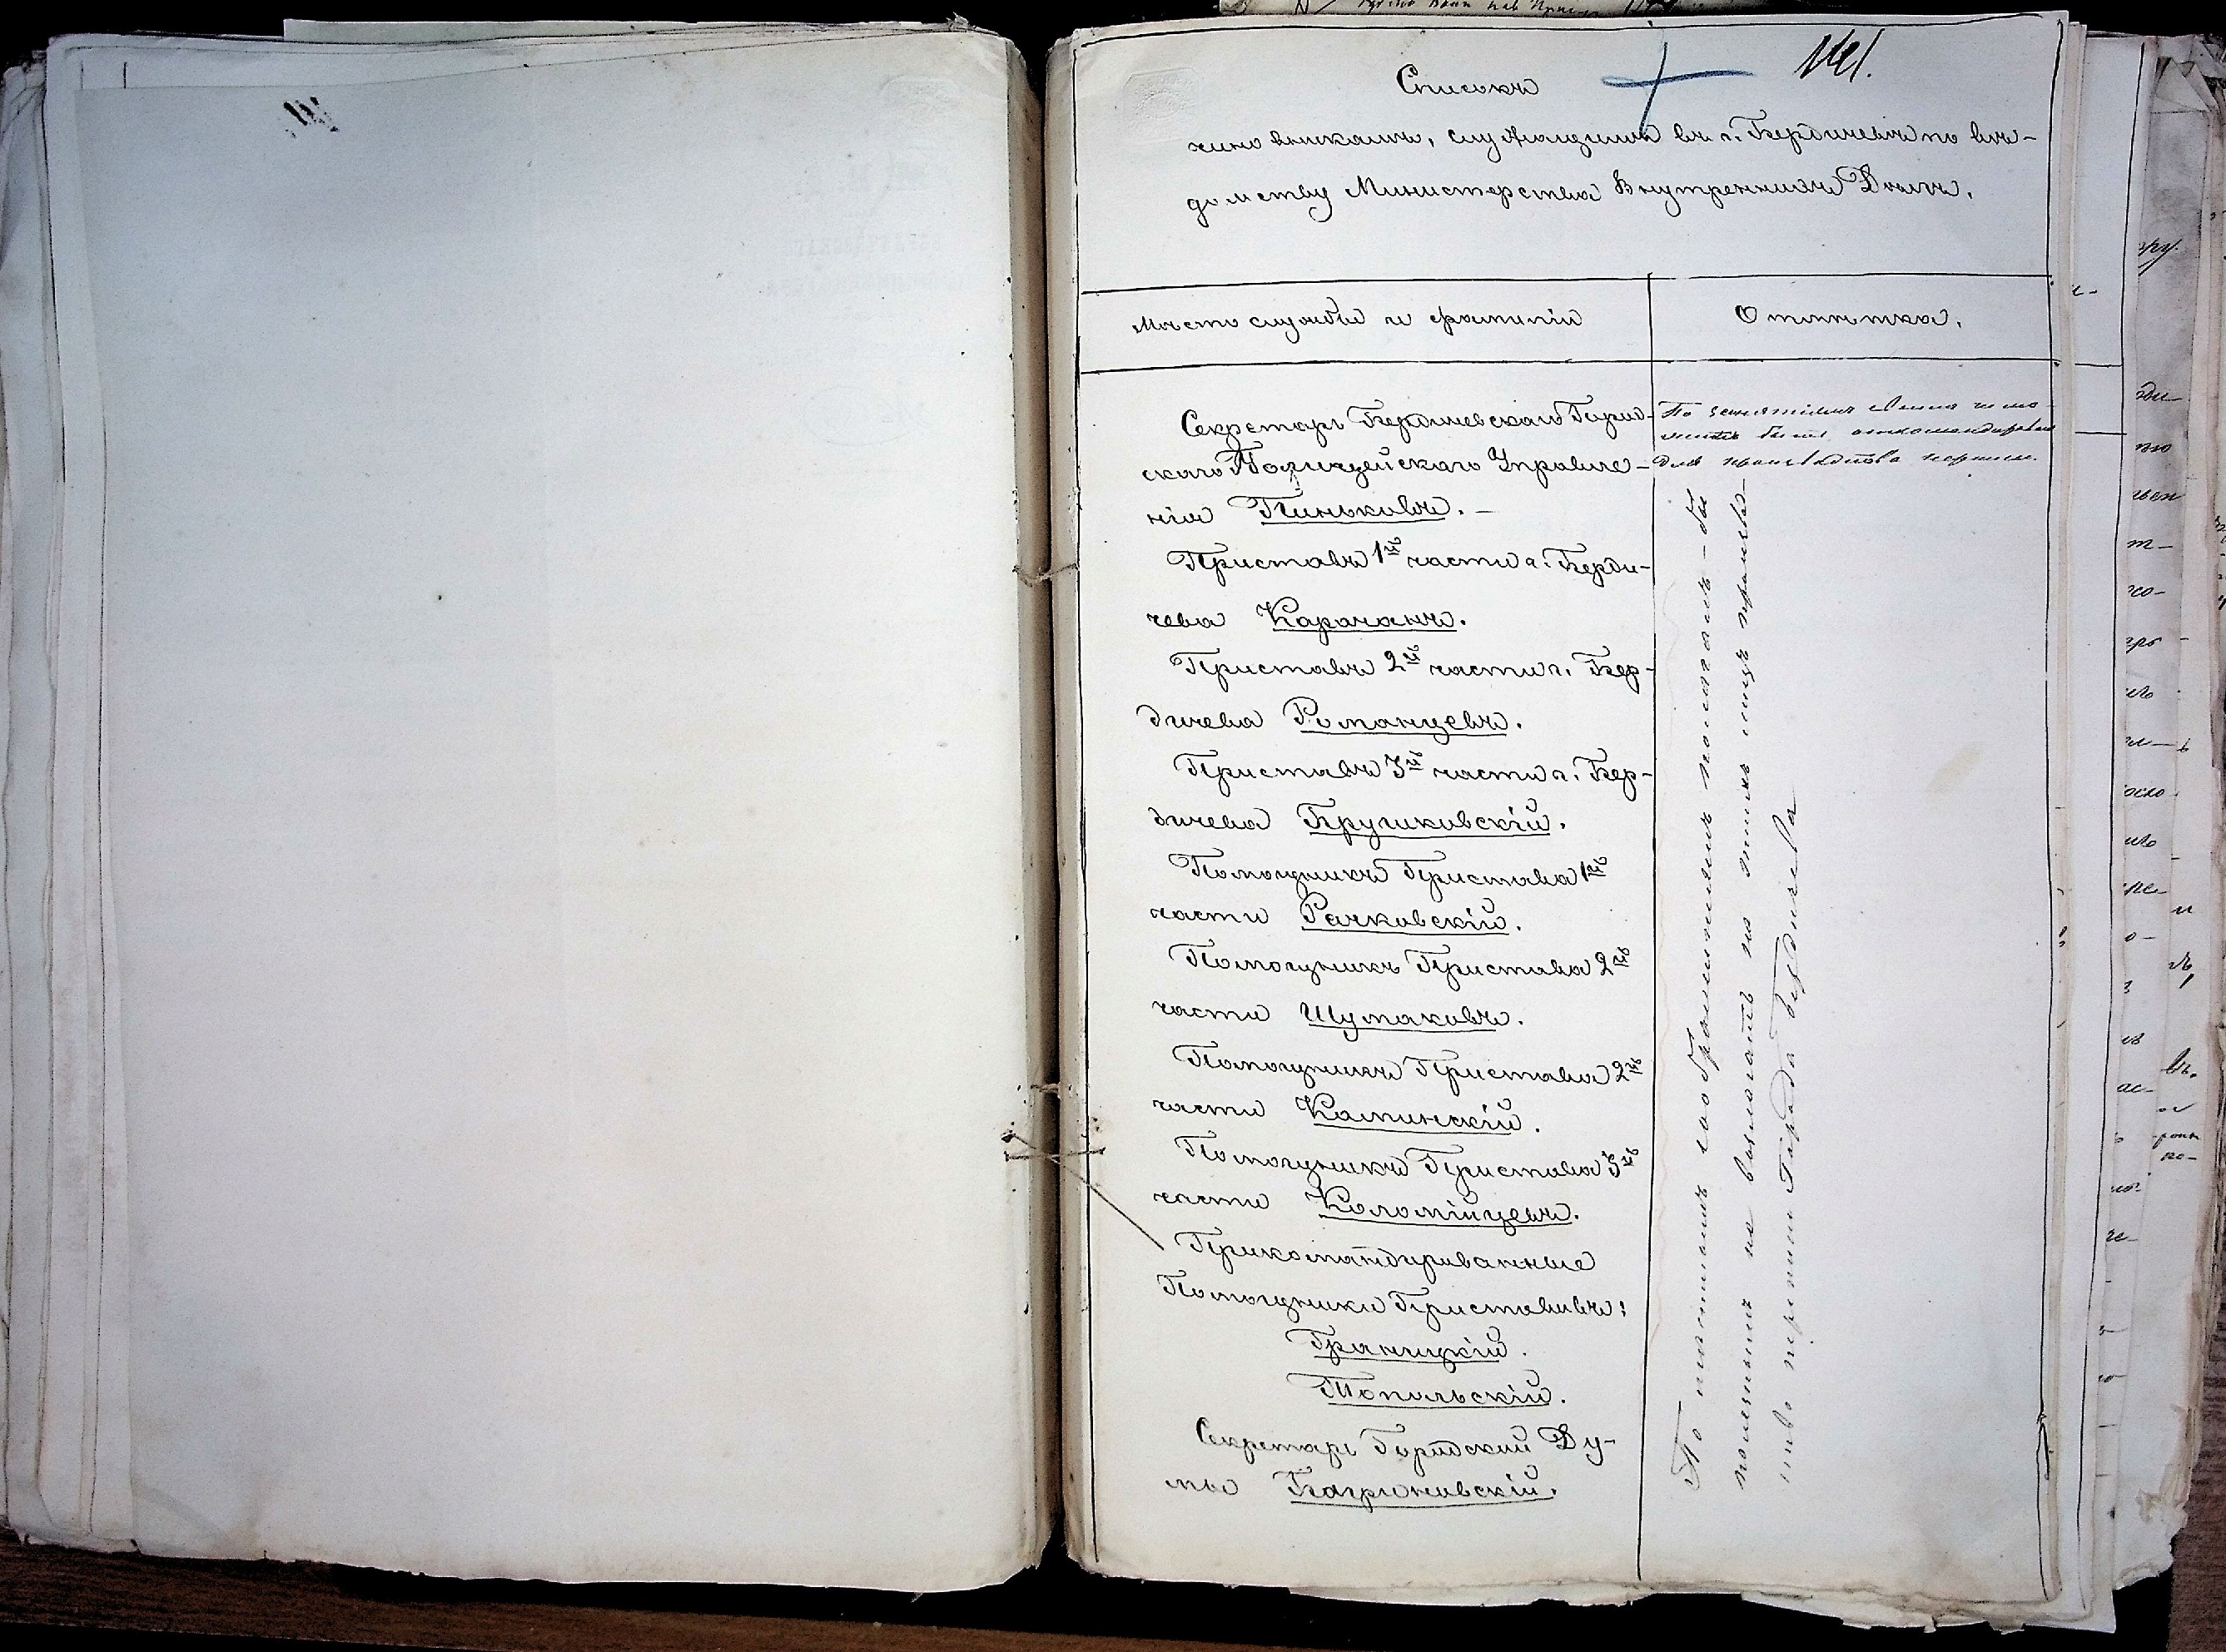 141.
Списокъ
чиновникамъ, служащимъ въ г. Бердичевѣ по вѣ-
домству Министерства Внутреннихъ Дѣлъ.
Мѣсто службы и фамиліи
Отмѣтка.
Секретарь Бердичевскаго Город-
скаго Полицейскаго Управле-
нія Пиньковъ. -
Приставъ 1й части г. Берди-
чева Карачанъ.
Приставъ 2й части г. Бер-
дичева Романцевъ.
Приставъ 3й части г. Бер-
дичева Прушковскій.
Помощникъ Пристава 1й
части Рачковскій.
Помощникъ Пристава 2й
части Шумаковъ.
Помощникъ Пристава 2й
части Каминскій.
Помощникъ Пристава 3й
части Коломійцевъ.
Прикомандированные
Помощники Приставовъ:
Границкій.
Топольскій.
Секретарь Городской Ду-
мы Багриновскій.
По занятіямъ
быть откомандированъ
для производства переписи.
По симъ соображеніямъ полагалъ-бы
полезнымъ не возлагать на этихъ лицъ производ-
ство переписи Города Бердичева